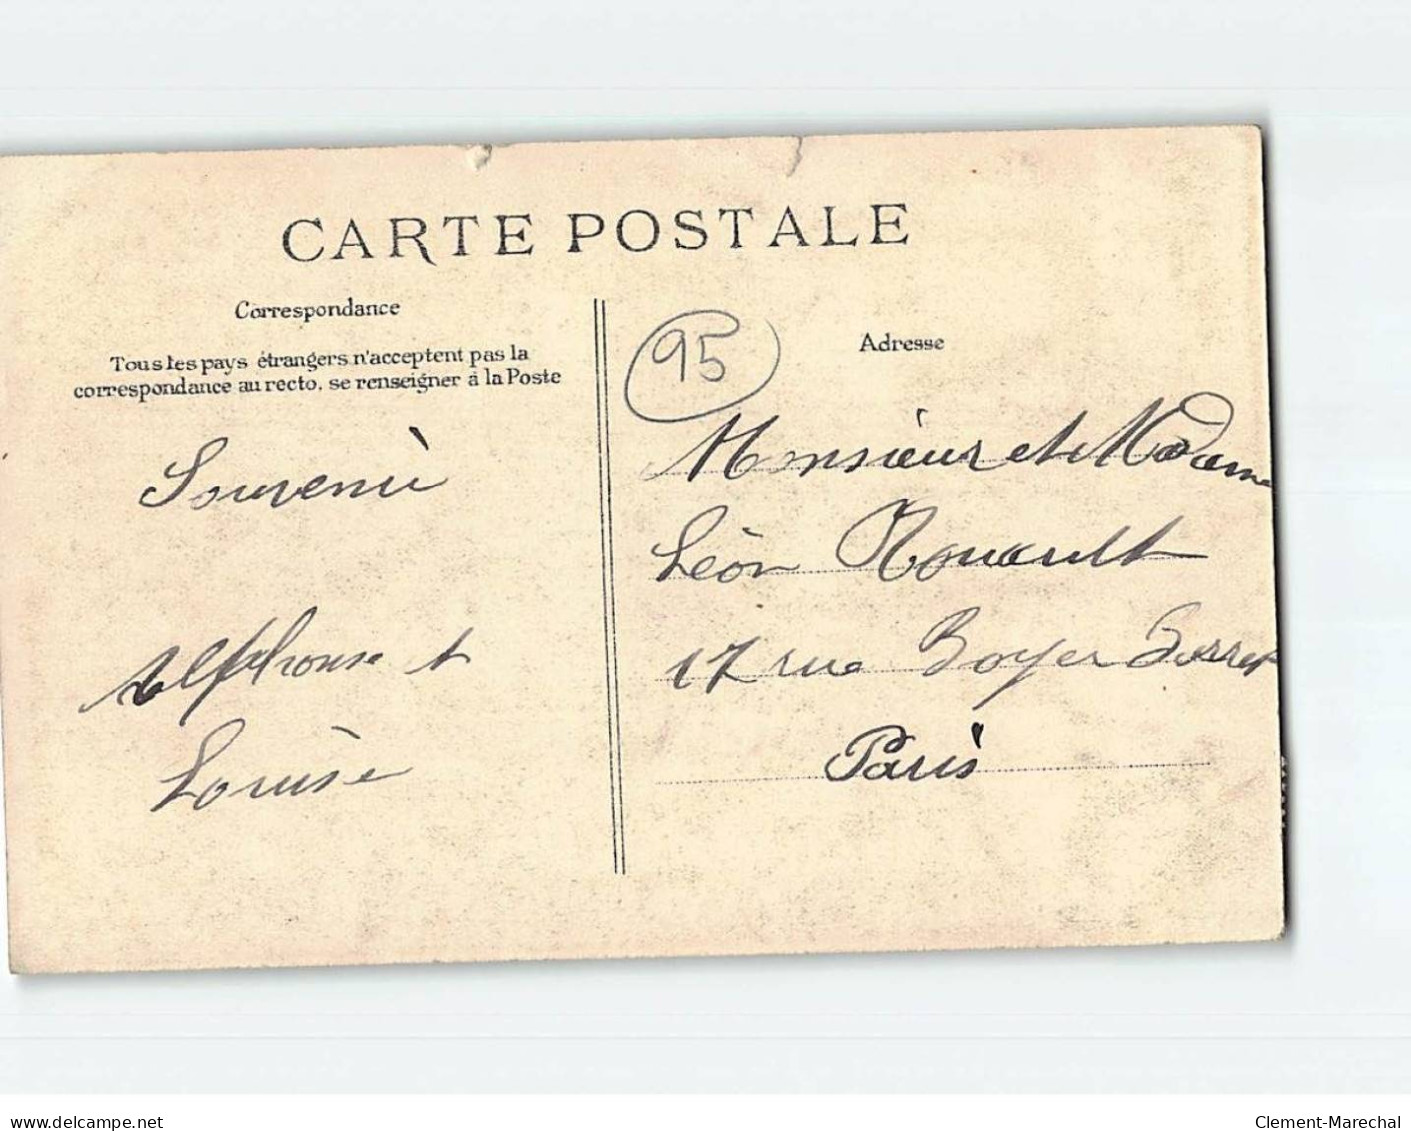 CARTE POSTALE
Correspondance
Tous les pays étrangers n'acceptent pas la
correspondance au recto, se renseigner à la Poste
Souvenir
Alphonse et
Louise
95
Adresse
Monsieur et Madame
Léon Rouault
17 rue Boyer Barret
Paris
delcampe.net
Clement-Marechal